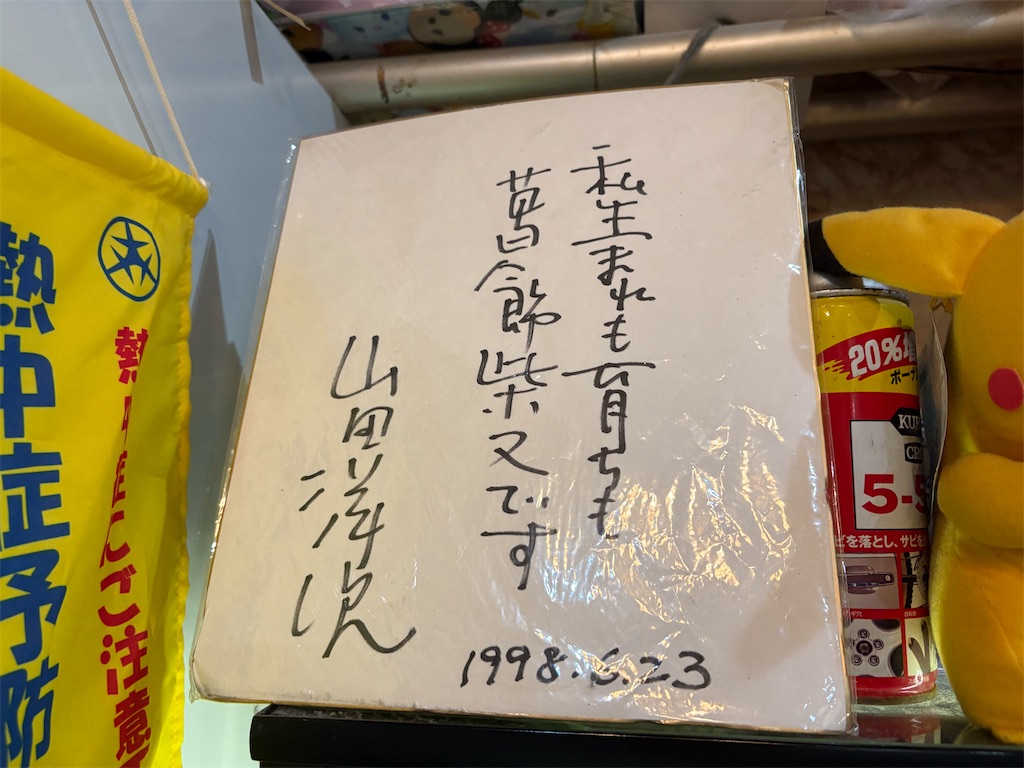 私生まれも育ちも
葛飾柴又です
山田洋次
1998.6.23
熱中症予防
熱中症にご注意
20%増
ボーナ
KUR
CR
5-5
ビを落とし、サビを